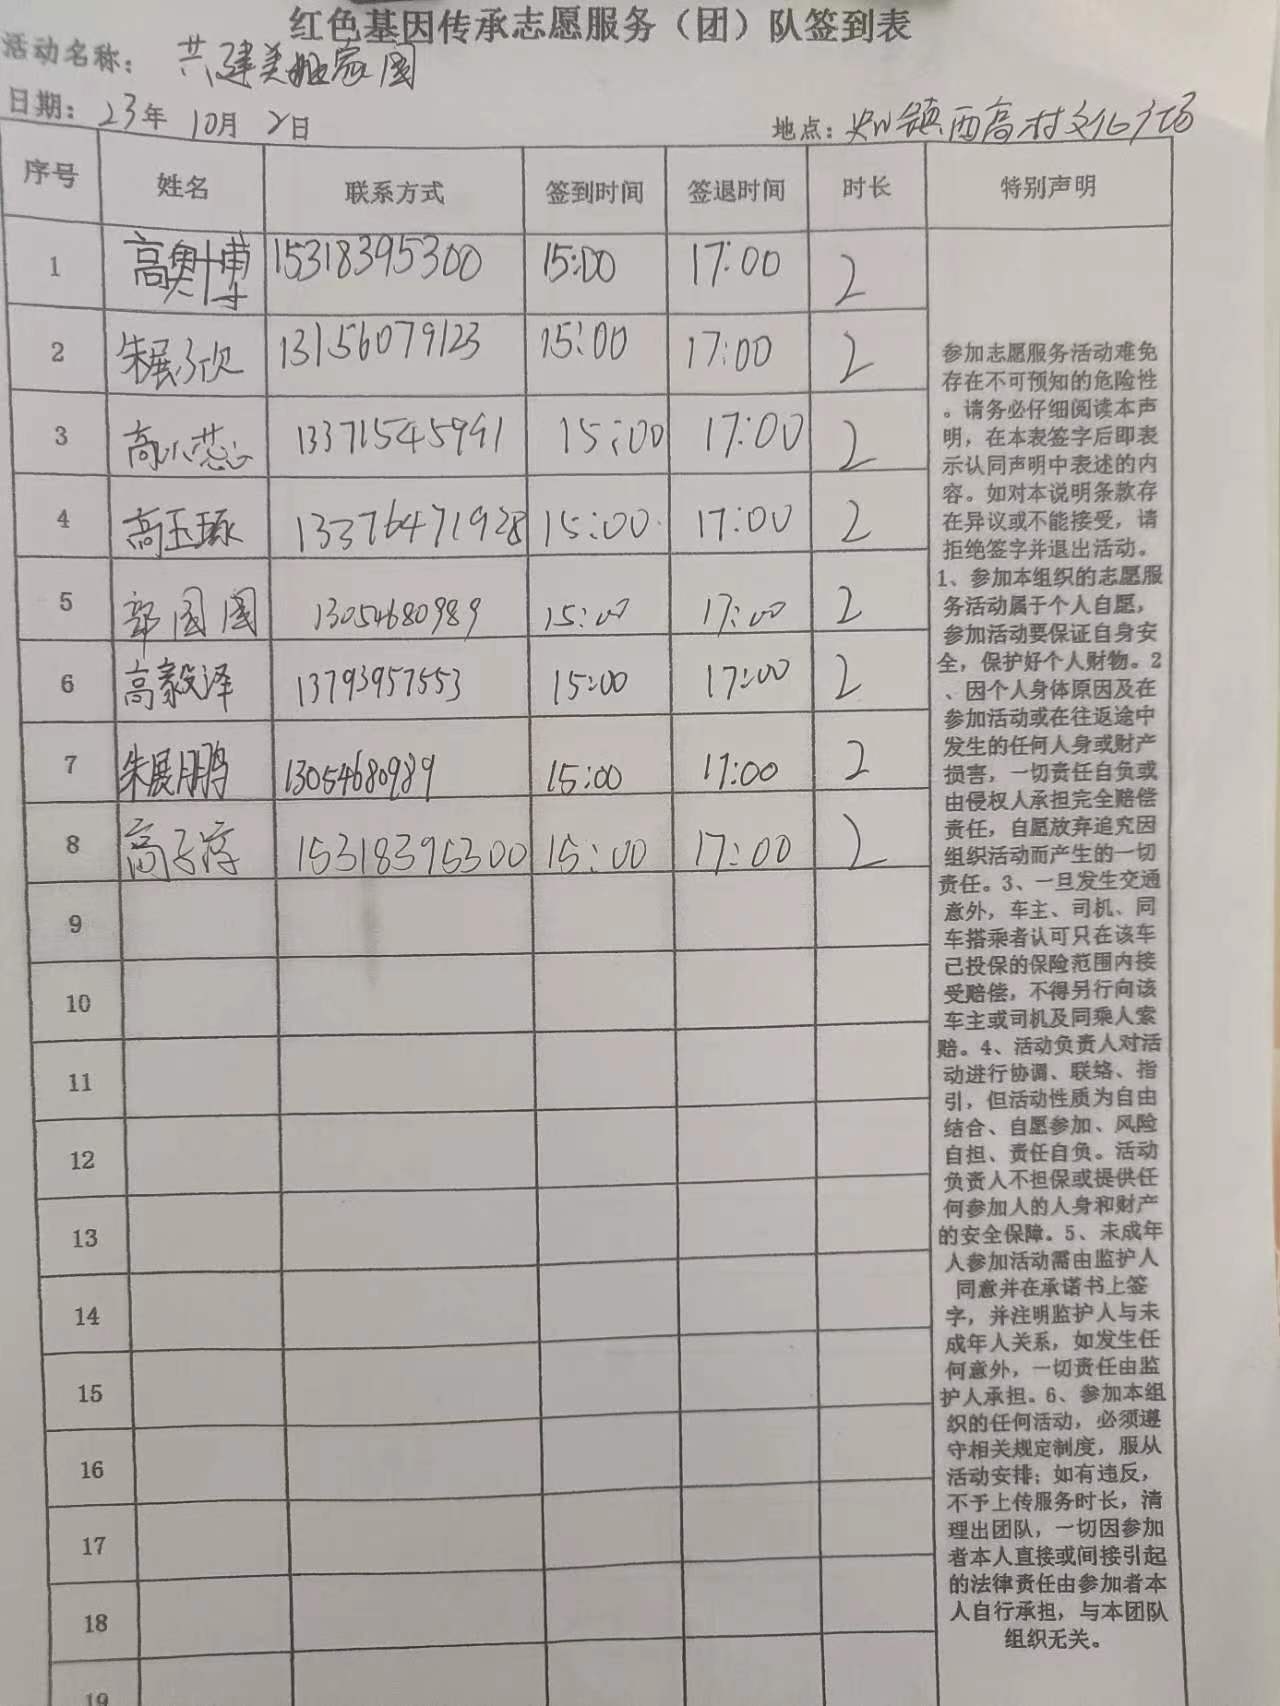 红色基因传承志愿服务（团）队签到表
活动名称： 共建美丽家园
日期：23年 10月 2日
地点： 镇西高村文化广场
序号 姓名 联系方式 签到时间 签退时间 时长 特别声明
1 高奥博 15318395300 15:00 17:00 2
2 朱展欣 13156079123 15:00 17:00 2
3 高 蕊 13371545991 15:00 17:00 2
4 高玉琢 13376471928 15:00 17:00 2
5 郭园园 13054680989 15:00 17:00 2
6 高毅泽 13793957553 15:00 17:00 2
7 朱展鹏 13054680989 15:00 17:00 2
8 高子淳 15318395300 15:00 17:00 2
9
10
11
12
13
14
15
16
17
18
19
参加志愿服务活动难免
存在不可预知的危险性
。请务必仔细阅读本声
明，在本表签字后即表
示认同声明中表述的内
容。如对本说明条款存
在异议或不能接受，请
拒绝签字并退出活动。
1、参加本组织的志愿服
务活动属于个人自愿，
参加活动要保证自身安
全，保护好个人财物。2
、因个人身体原因及在
参加活动或在往返途中
发生的任何人身或财产
损害，一切责任自负或
由侵权人承担完全赔偿
责任，自愿放弃追究因
组织活动而产生的一切
责任。3、一旦发生交通
意外，车主、司机、同
车搭乘者认可只在该车
已投保的保险范围内接
受赔偿，不得另行向该
车主或司机及同乘人索
赔。4、活动负责人对活
动进行协调、联络、指
引，但活动性质为自由
结合、自愿参加、风险
自担、责任自负。活动
负责人不担保或提供任
何参加人的人身和财产
的安全保障。5、未成年
人参加活动需由监护人
同意并在承诺书上签
字，并注明监护人与未
成年人关系，如发生任
何意外，一切责任由监
护人承担。6、参加本组
织的任何活动，必须遵
守相关规定制度，服从
活动安排；如有违反，
不予上传服务时长，清
理出团队，一切因参加
者本人直接或间接引起
的法律责任由参加者本
人自行承担，与本团队
组织无关。